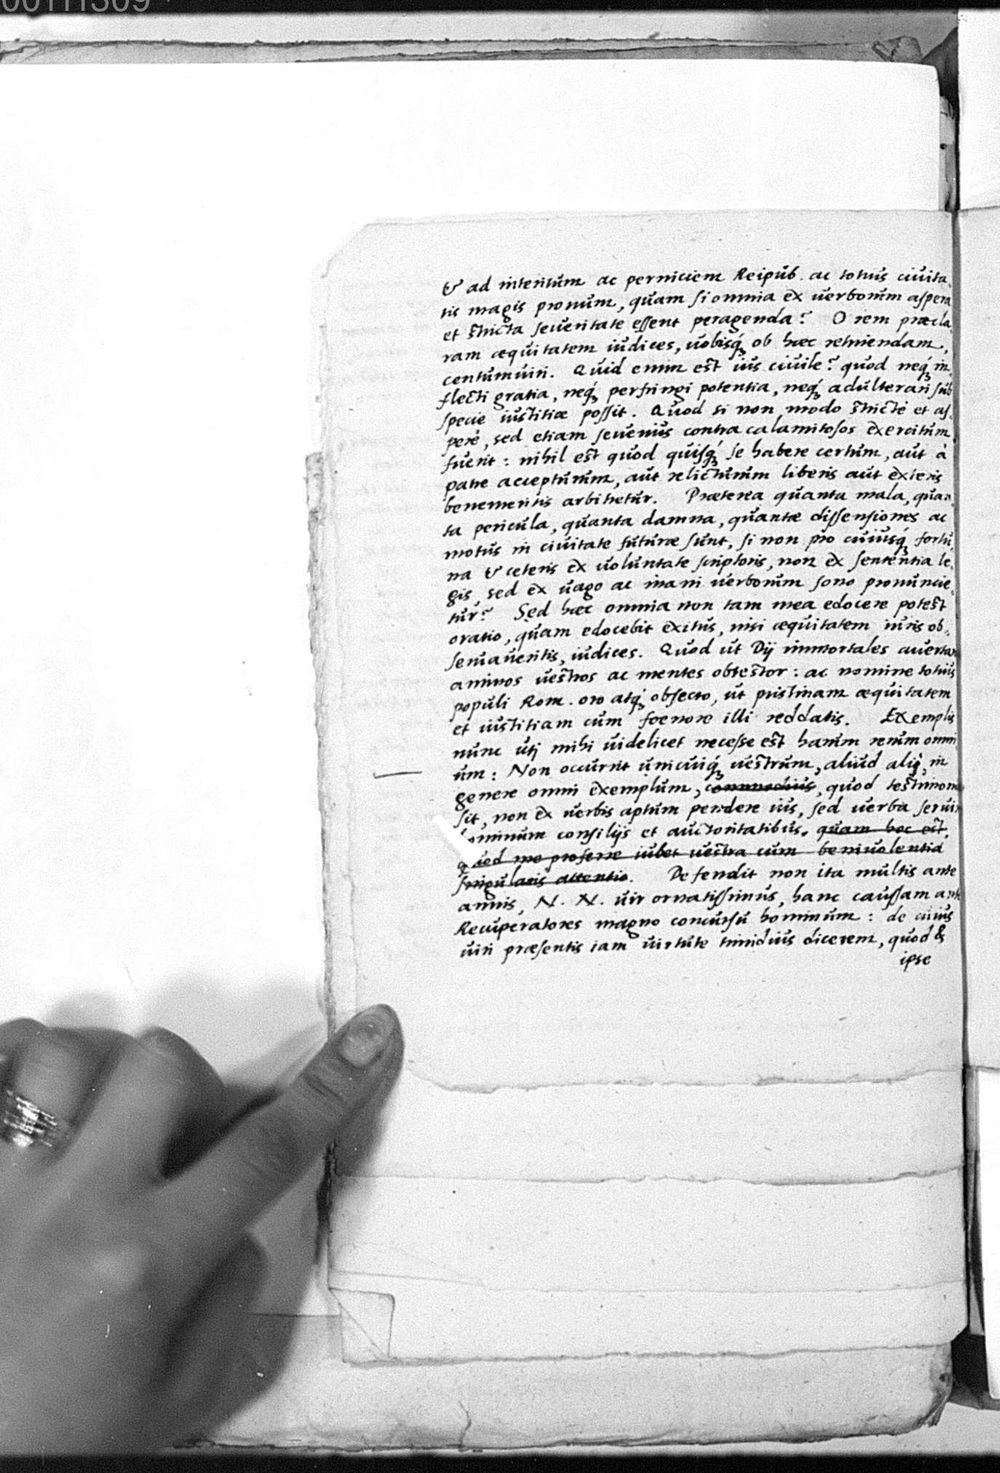 00111309
& ad interitum ac perniciem Reipub. ac totius ciuita,
tis magis pronum, quam si omnia ex uerborum aspera
et stricta seueritate essent peragenda? O rem præcla,
ram æquitatem iudices, uobisq́ ob hæc retinendam,
centumuiri. Quid enim est ius ciuile? quod neq́ in,
flecti gratia, neq́ perfringi potentia, neq́ adulterari sub
specie iustitiæ possit. Quod si non modo strictè et as,
perè, sed etiam seuerius contra calamitosos exercitum
fuerit: nihil est quod quisq́ se habere certum, aut à
patre accepturum, aut relicturum liberis aut exteris
benemeritis arbitretur. Præterea quanta mala, quan,
ta pericula, quanta damna, quantæ dissensiones ac
motus in ciuitate futuræ sunt, si non pro cuiusq́ fortu
na & ceteris ex uoluntate scriptoris, non ex sententia le,
gis, sed ex uago ac inani uerborum sono pronuncie,
tur? Sed hæc omnia non tam mea edocere potest
oratio, quam edocebit exitus, nisi æquitatem iuris ob,
seruaueritis, iudices. Quod ut Dij immortales auertant
animos uestros ac mentes obtestor: ac nomine totius
populi Rom. oro atq́ obsecro, ut pristinam æquitatem
et iustitiam cum foenore illi reddatis. Exemplis
nunc uti mihi uidelicet necesse est harum rerum omni
um: Non occurrit unicuiq́ uestrum, aliud aliq́, in
genere omni exemplum, commodius, quod testimonio
sit, non ex uerbis aptum pendere ius, sed uerba seruire
hominum consilijs et auctoritatibus. quam hoc est,
quod me proferre iubet uestra cum beniuolentia
singularis attentio. Defendit non ita multis ante
annis, N. N. uir ornatissimus, hanc caussam ante
Recuperatores magno concursu hominum: de cuius
uiri præsentis iam uirtute timidius dicerem, quod &
ipse